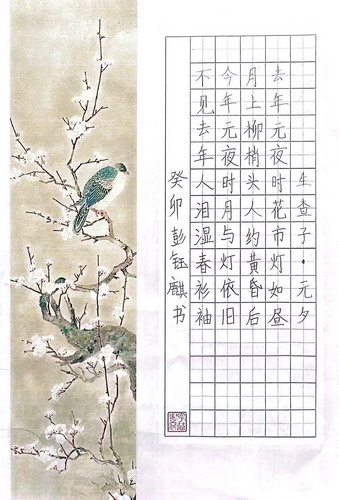 生查子·元夕
去年元夜时花市灯如昼
月上柳梢头人约黄昏后
今年元夜时月与灯依旧
不见去年人泪湿春衫袖
癸卯彭钰麒书